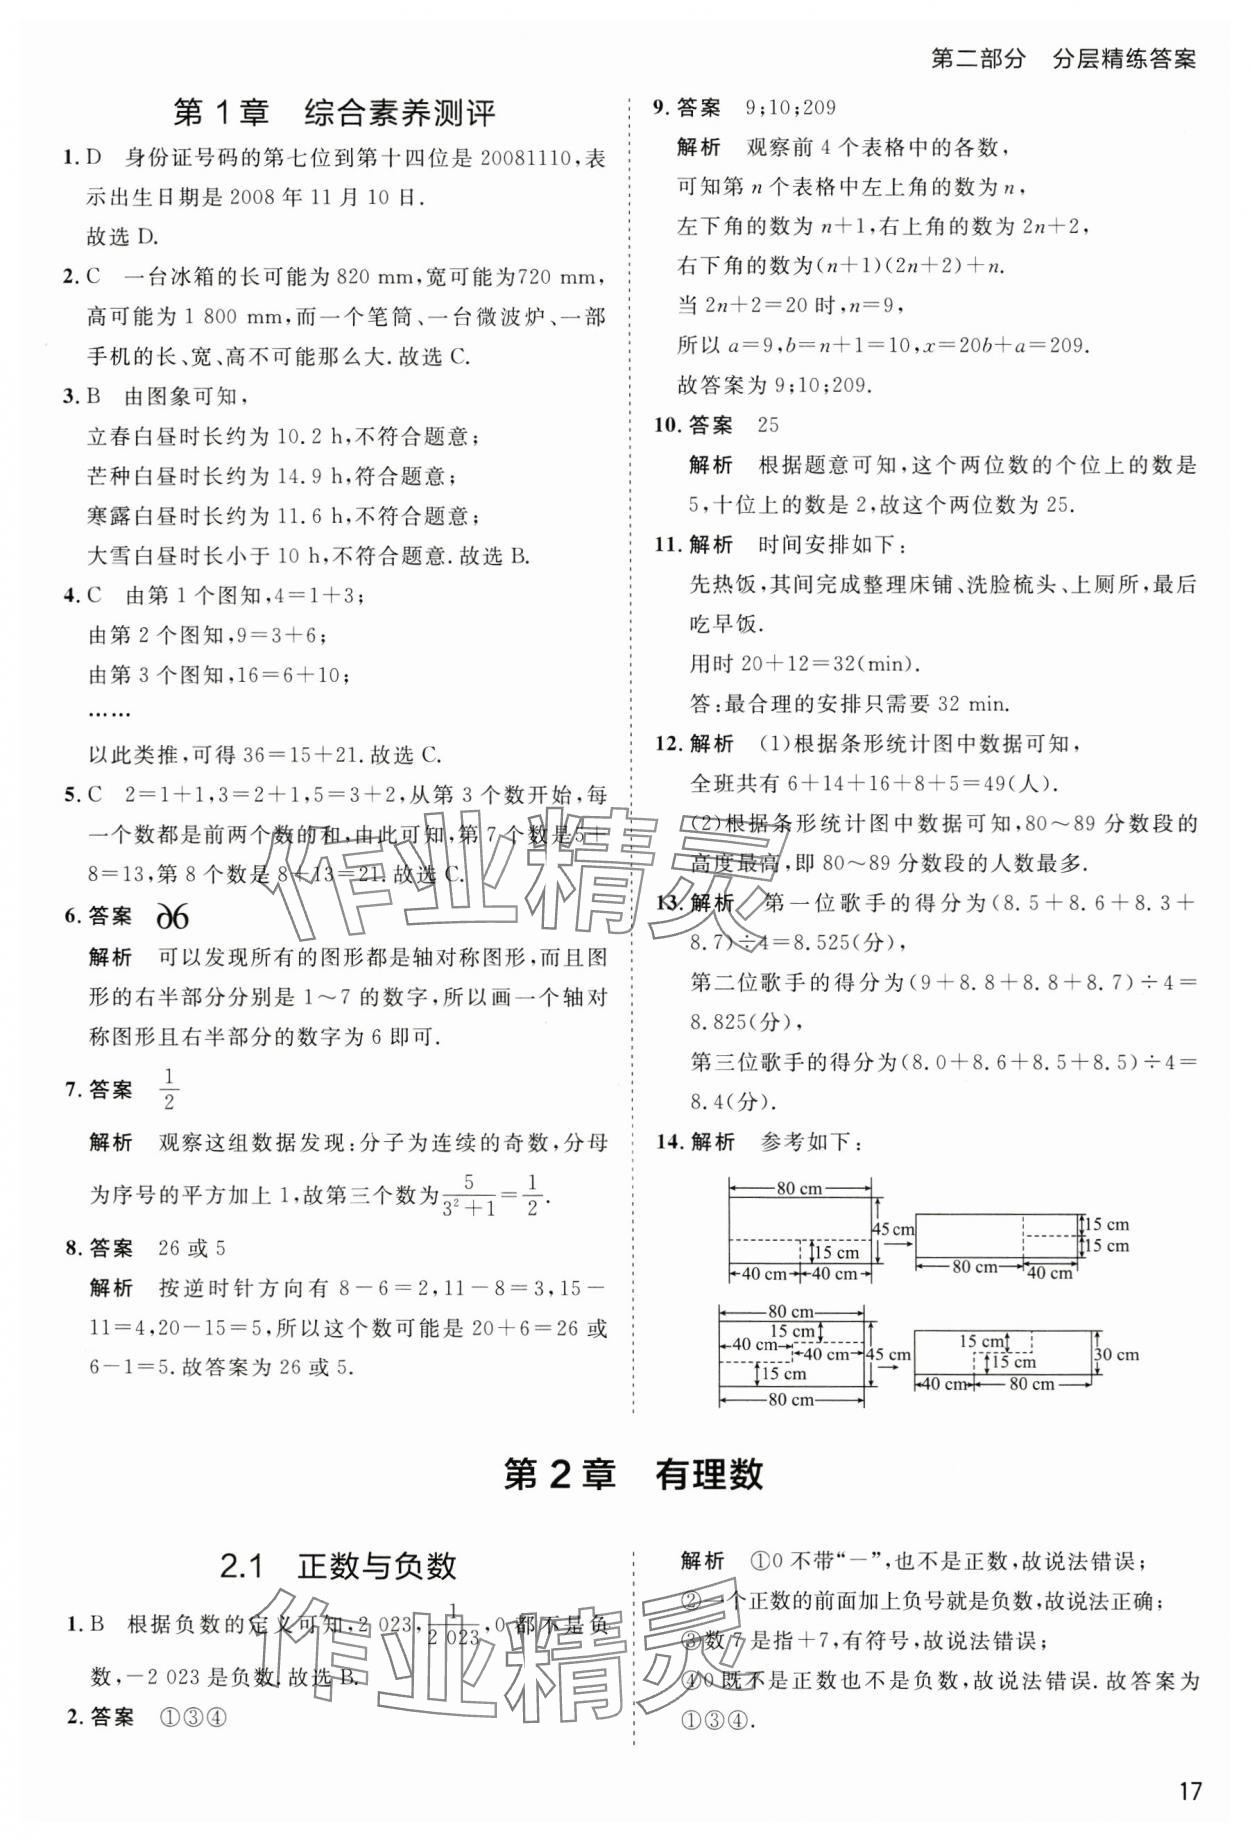 第二部分　分层精练答案
第 1 章　综合素养测评
1. D　身份证号码的第七位到第十四位是 20081110,表
示出生日期是 2008 年 11 月 10 日.
故选 D.
2. C　一台冰箱的长可能为 820 mm,宽可能为720 mm,
高可能为 1 800 mm,而一个笔筒、一台微波炉、一部
手机的长、宽、高不可能那么大.故选 C.
3. B　由图象可知,
立春白昼时长约为 10.2 h,不符合题意;
芒种白昼时长约为 14.9 h,符合题意;
寒露白昼时长约为 11.6 h,不符合题意;
大雪白昼时长小于 10 h,不符合题意.故选 B.
4. C　由第 1 个图知,4=1+3;
由第 2 个图知,9=3+6;
由第 3 个图知,16=6+10;
……
以此类推,可得 36=15+21.故选 C.
5. C　2=1+1,3=2+1,5=3+2,从第 3 个数开始,每
一个数都是前两个数的和,由此可知,第 7 个数是5+
8=13,第 8 个数是 8+13=21.故选 C.
6. 答案
解析　可以发现所有的图形都是轴对称图形,而且图
形的右半部分分别是 1～7 的数字,所以画一个轴对
称图形且右半部分的数字为 6 即可.
7. 答案　1/2
解析　观察这组数据发现:分子为连续的奇数,分母
为序号的平方加上 1,故第三个数为5/(3²+1)=1/2.
8. 答案　26 或 5
解析　按逆时针方向有 8-6=2,11-8=3,15-
11=4,20-15=5,所以这个数可能是 20+6=26 或
6-1=5.故答案为 26 或 5.
9. 答案　9;10;209
解析　观察前 4 个表格中的各数,
可知第 n 个表格中左上角的数为 n,
左下角的数为 n+1,右上角的数为 2n+2,
右下角的数为(n+1)(2n+2)+n.
当 2n+2=20 时,n=9,
所以 a=9,b=n+1=10,x=20b+a=209.
故答案为 9;10;209.
10. 答案　25
解析　根据题意可知,这个两位数的个位上的数是
5,十位上的数是 2,故这个两位数为 25.
11. 解析　时间安排如下:
先热饭,其间完成整理床铺、洗脸梳头、上厕所,最后
吃早饭.
用时 20+12=32(min).
答:最合理的安排只需要 32 min.
12. 解析　(1)根据条形统计图中数据可知,
全班共有 6+14+16+8+5=49(人).
(2)根据条形统计图中数据可知,80～89 分数段的
高度最高,即 80～89 分数段的人数最多.
13. 解析　第一位歌手的得分为(8.5+8.6+8.3+
8.7)÷4=8.525(分),
第二位歌手的得分为(9+8.8+8.8+8.7)÷4=
8.825(分),
第三位歌手的得分为(8.0+8.6+8.5+8.5)÷4=
8.4(分).
14. 解析　参考如下:
80 cm
45 cm
15 cm
40 cm 40 cm
15 cm
15 cm
80 cm
40 cm
80 cm
15 cm
40 cm
40 cm
45 cm
15 cm
80 cm
15 cm
15 cm
30 cm
40 cm
80 cm
第 2 章　有理数
2.1　正数与负数
1. B　根据负数的定义可知,2 023,1/2 023,0 都不是负
数,-2 023 是负数.故选 B.
2. 答案　①③④
解析　①0 不带“-”,也不是正数,故说法错误;
②一个正数的前面加上负号就是负数,故说法正确;
③数 7 是指+7,有符号,故说法错误;
④0 既不是正数也不是负数,故说法错误.故答案为
①③④.
作业精灵
作业精灵
17